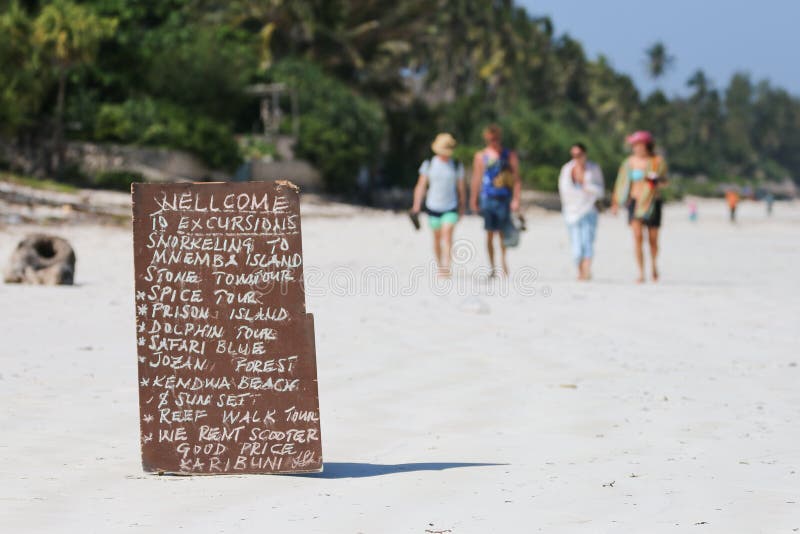 WELLCOME
TO EXCURSIONS
SNORKELING TO
MNEMBA ISLAND
STONE TOWN TOUR
* SPICE TOUR
* PRISON ISLAND
* DOLPHIN TOUR
* SAFARI BLUE
* JOZANI FOREST
* KENDWA BEACH
& SUN SET
* REEF WALK TOUR
* WE RENT SCOOTER
GOOD PRICE
KARIBUNI
dreamstime